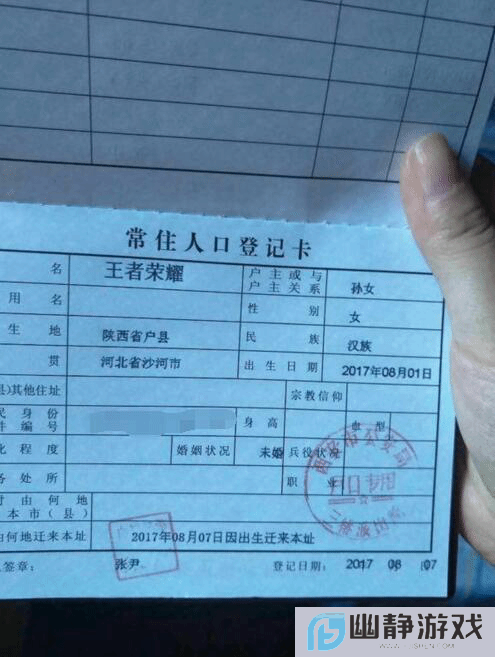 常住人口登记卡
名 王者荣耀 户主或与户主关系 孙女
用名 性别 女
生地 陕西省户县 民族 汉族
贯 河北省沙河市 出生日期 2017年08月01日
县)其他住址 宗教信仰
民身份件编号 身高 血型
化程度 婚姻状况 未婚 兵役状况
务处所 职业
时由何地本市(县)
何地迁来本址 2017年08月07日因出生迁来本址
签章: 张尹 登记日期: 2017 08 07
幽静游戏